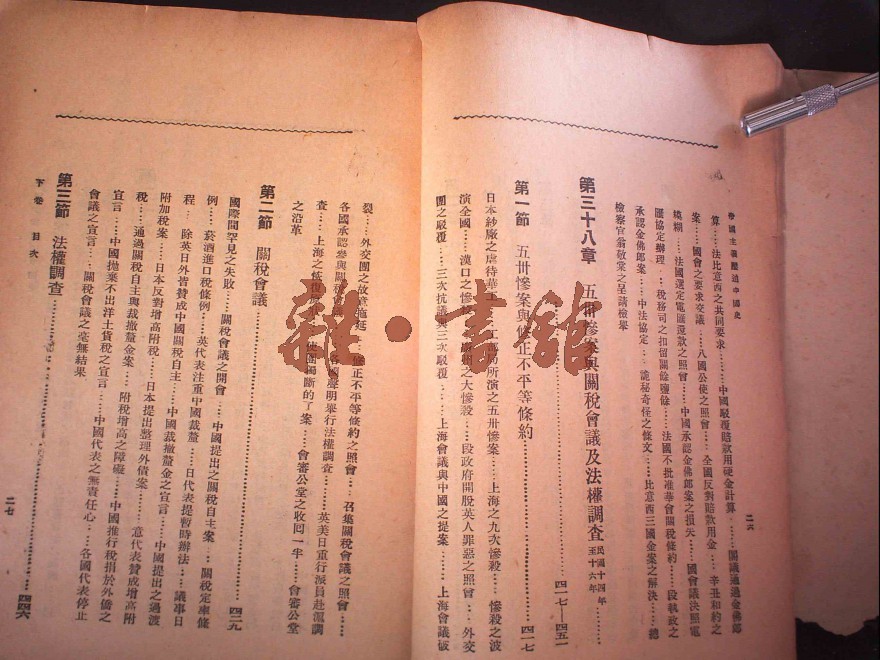 帝國主義壓迫中國史
二六
算……法比意西之共同要求……中國駁覆賠款用硬金計算……閣議通過金佛郎
案……國會之要求交議……八國公使之照會……全國反對賠款用金……辛丑和約之
模糊……法國選定電匯還款之照會……中國承認金佛郎案之損失……國會議決照電
匯協定辦理……稅務司之扣留關餘鹽餘……法國不批准華會關稅條約……段執政之
承認金佛郎案……中法協定……詭秘奇怪之條文……比意西三國金案之解決……總
檢察官翁敬棠之呈請檢舉
第三十八章 五卅慘案與關稅會議及法權調查 民國十四年至十六年……四一七——四五一
第一節 五卅慘案與修正不平等條約……四一七
日本紗廠之虐待華工……工部局所演之五卅慘案……上海之九次慘殺……慘殺之波
演全國……漢口之慘……之大慘殺……段政府開脫英人罪惡之照會……外交
團之駁覆……三次抗議與三次駁覆……上海會議與中國之提案……上海會議破
裂……外交團之故意拖延……修正不平等條約之照會……召集關稅會議之照會……
各國承認參與關稅會……各國聲明舉行法權調查……英美日重行派員赴滬調
查……上海之恢復……使團獨斷的了案……會審公堂之收回一半……會審公堂
之沿革
第二節 關稅會議……四二九
國際間罕見之失敗……關稅會議之開會……中國提出之關稅自主案……關稅定率條
例……菸酒進口稅條例……英代表注重中國裁釐……日代表提暫時辦法……議事日
程……除英日外皆贊成中國關稅自主……中國裁撤釐金之宣言……中國提出之過渡
附加稅案……日本反對增高附稅……日本提出整理外債案……意代表贊成增高附
稅……通過關稅自主與裁撤釐金案……附稅增高之障礙……中國推行稅捐於外僑之
宣言……中國拋棄不出洋土貨稅之宣言……中國代表之無責任心……各國代表停止
會議之宣言……關稅會議之毫無結果
第三節 法權調查……四四六
下卷 目次
二七
雜·書館